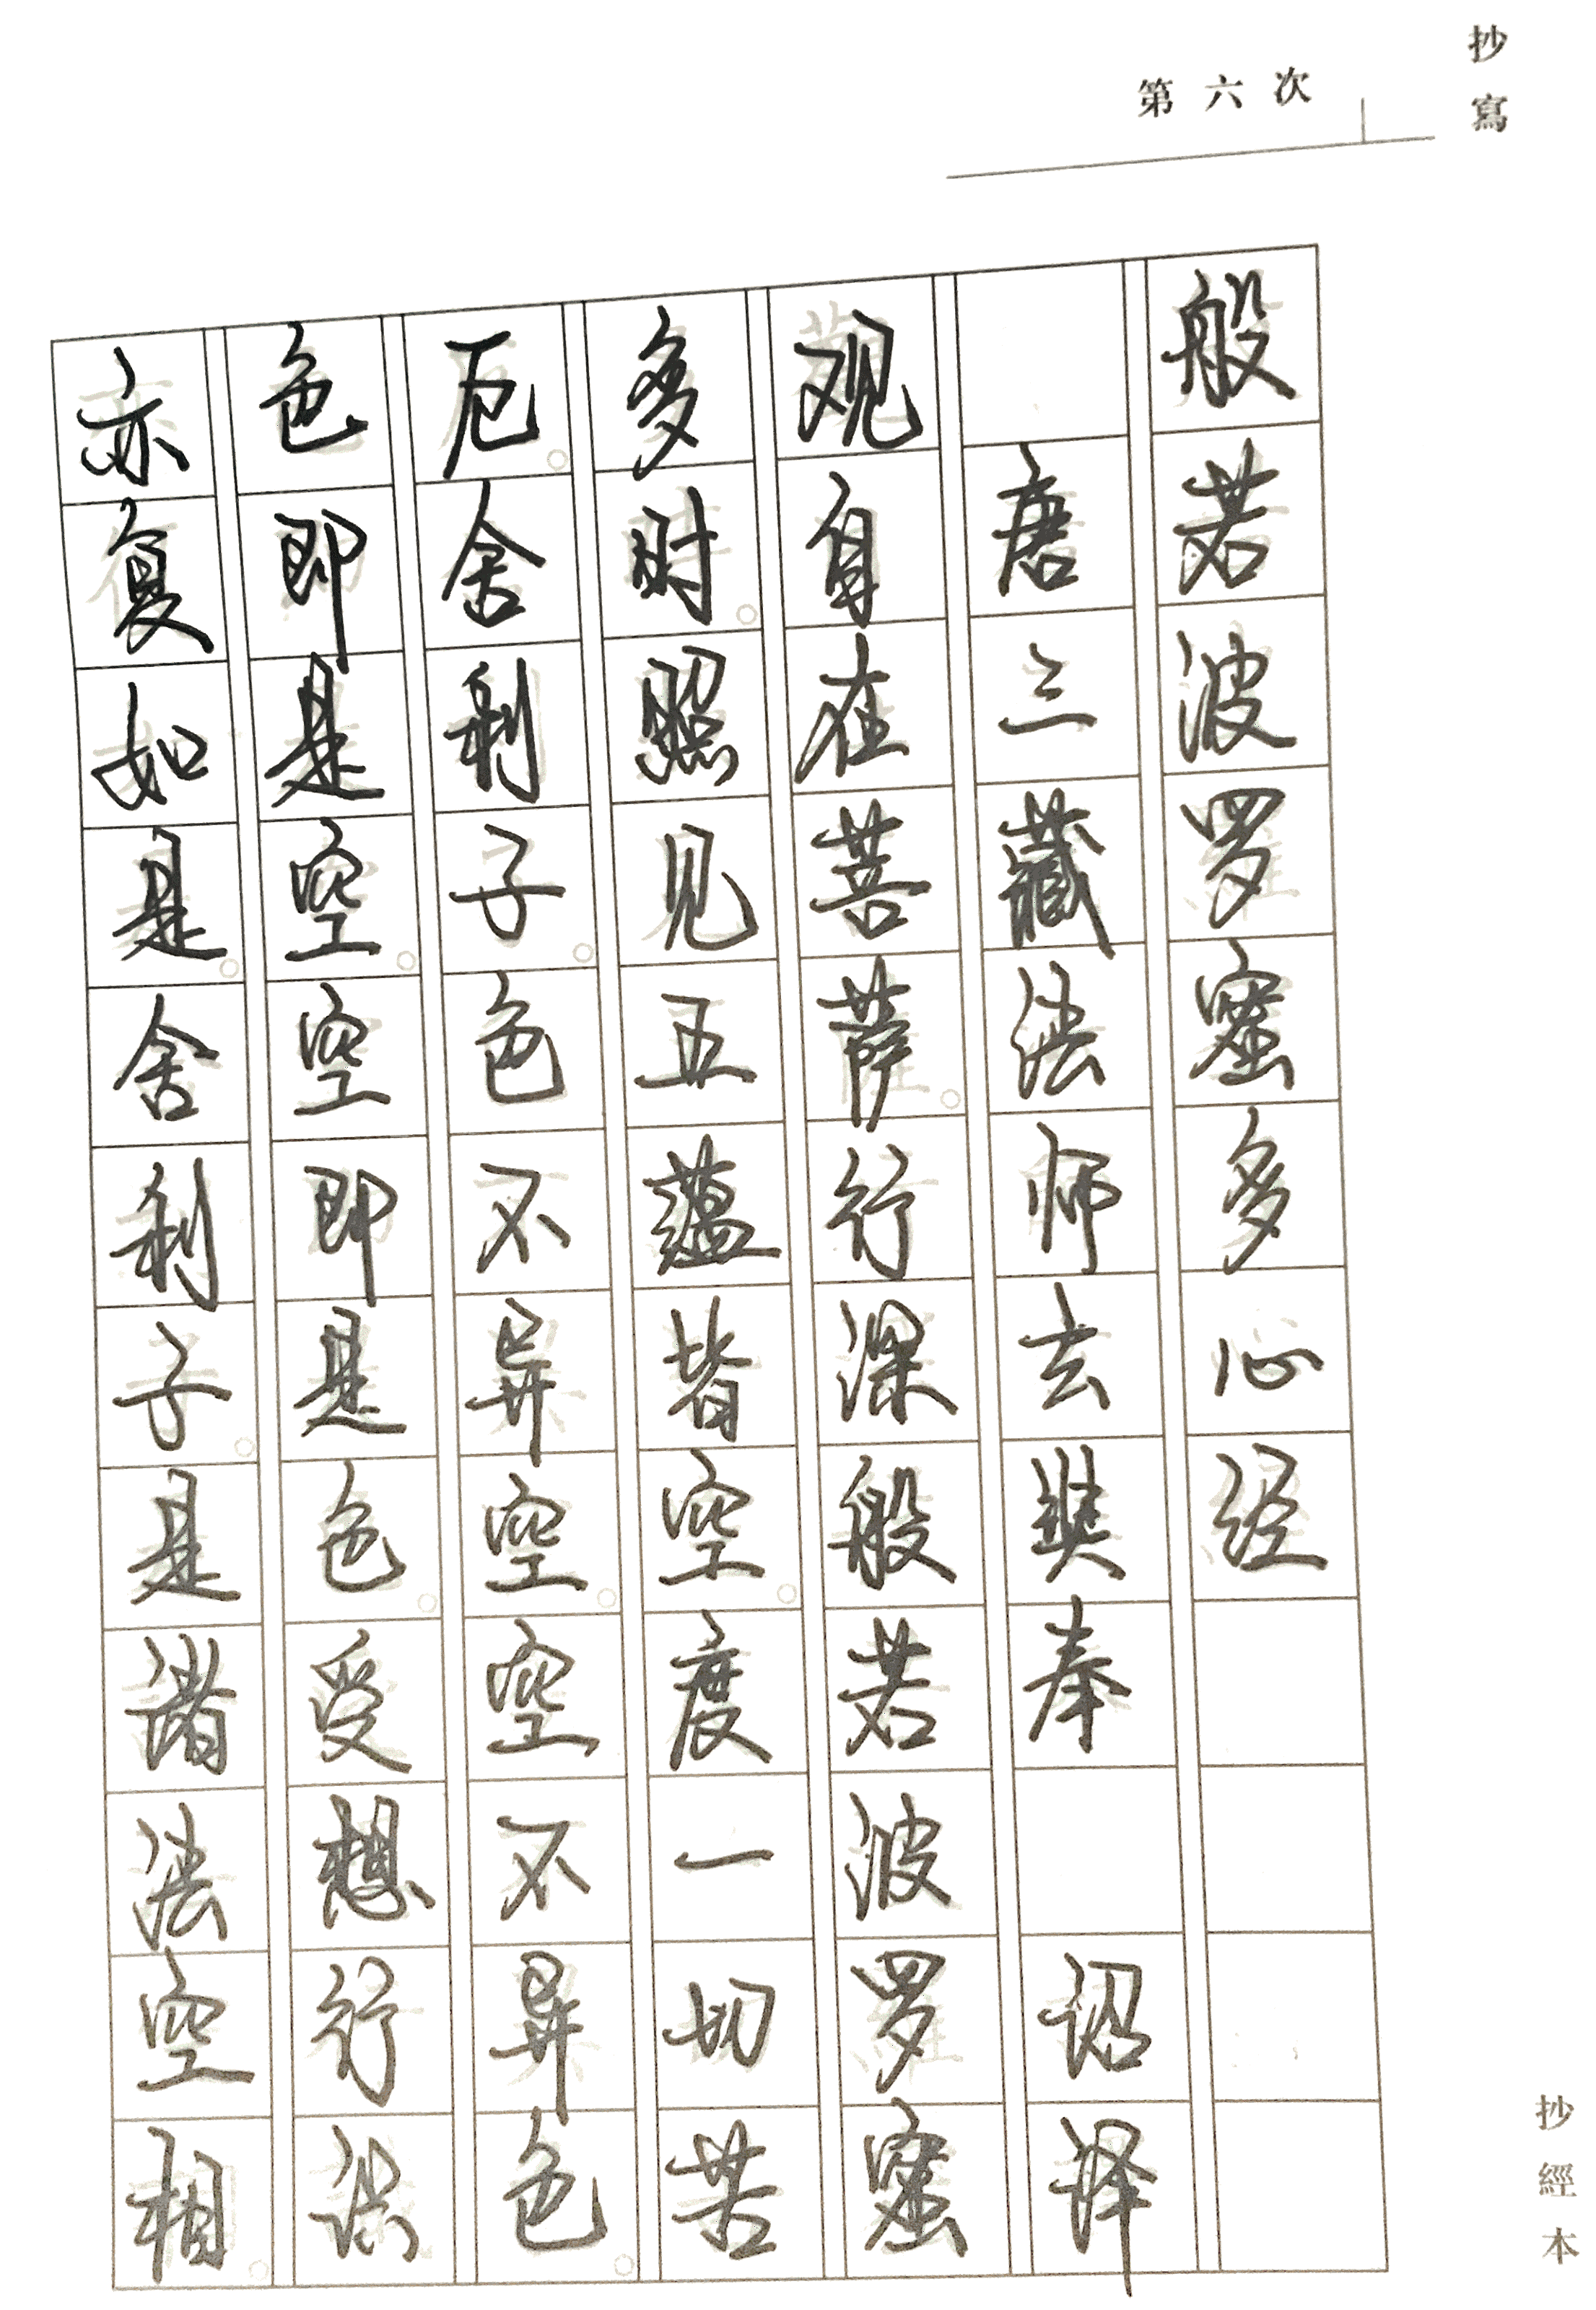 抄寫
第六次
般若波罗蜜多心经
唐三藏法师玄奘奉 诏译
观自在菩萨。行深般若波罗蜜
多时。照见五蕴皆空。度一切苦
厄。舍利子。色不异空。空不异色。
色即是空。空即是色。受想行识
亦复如是。舍利子。是诸法空相。
抄經本